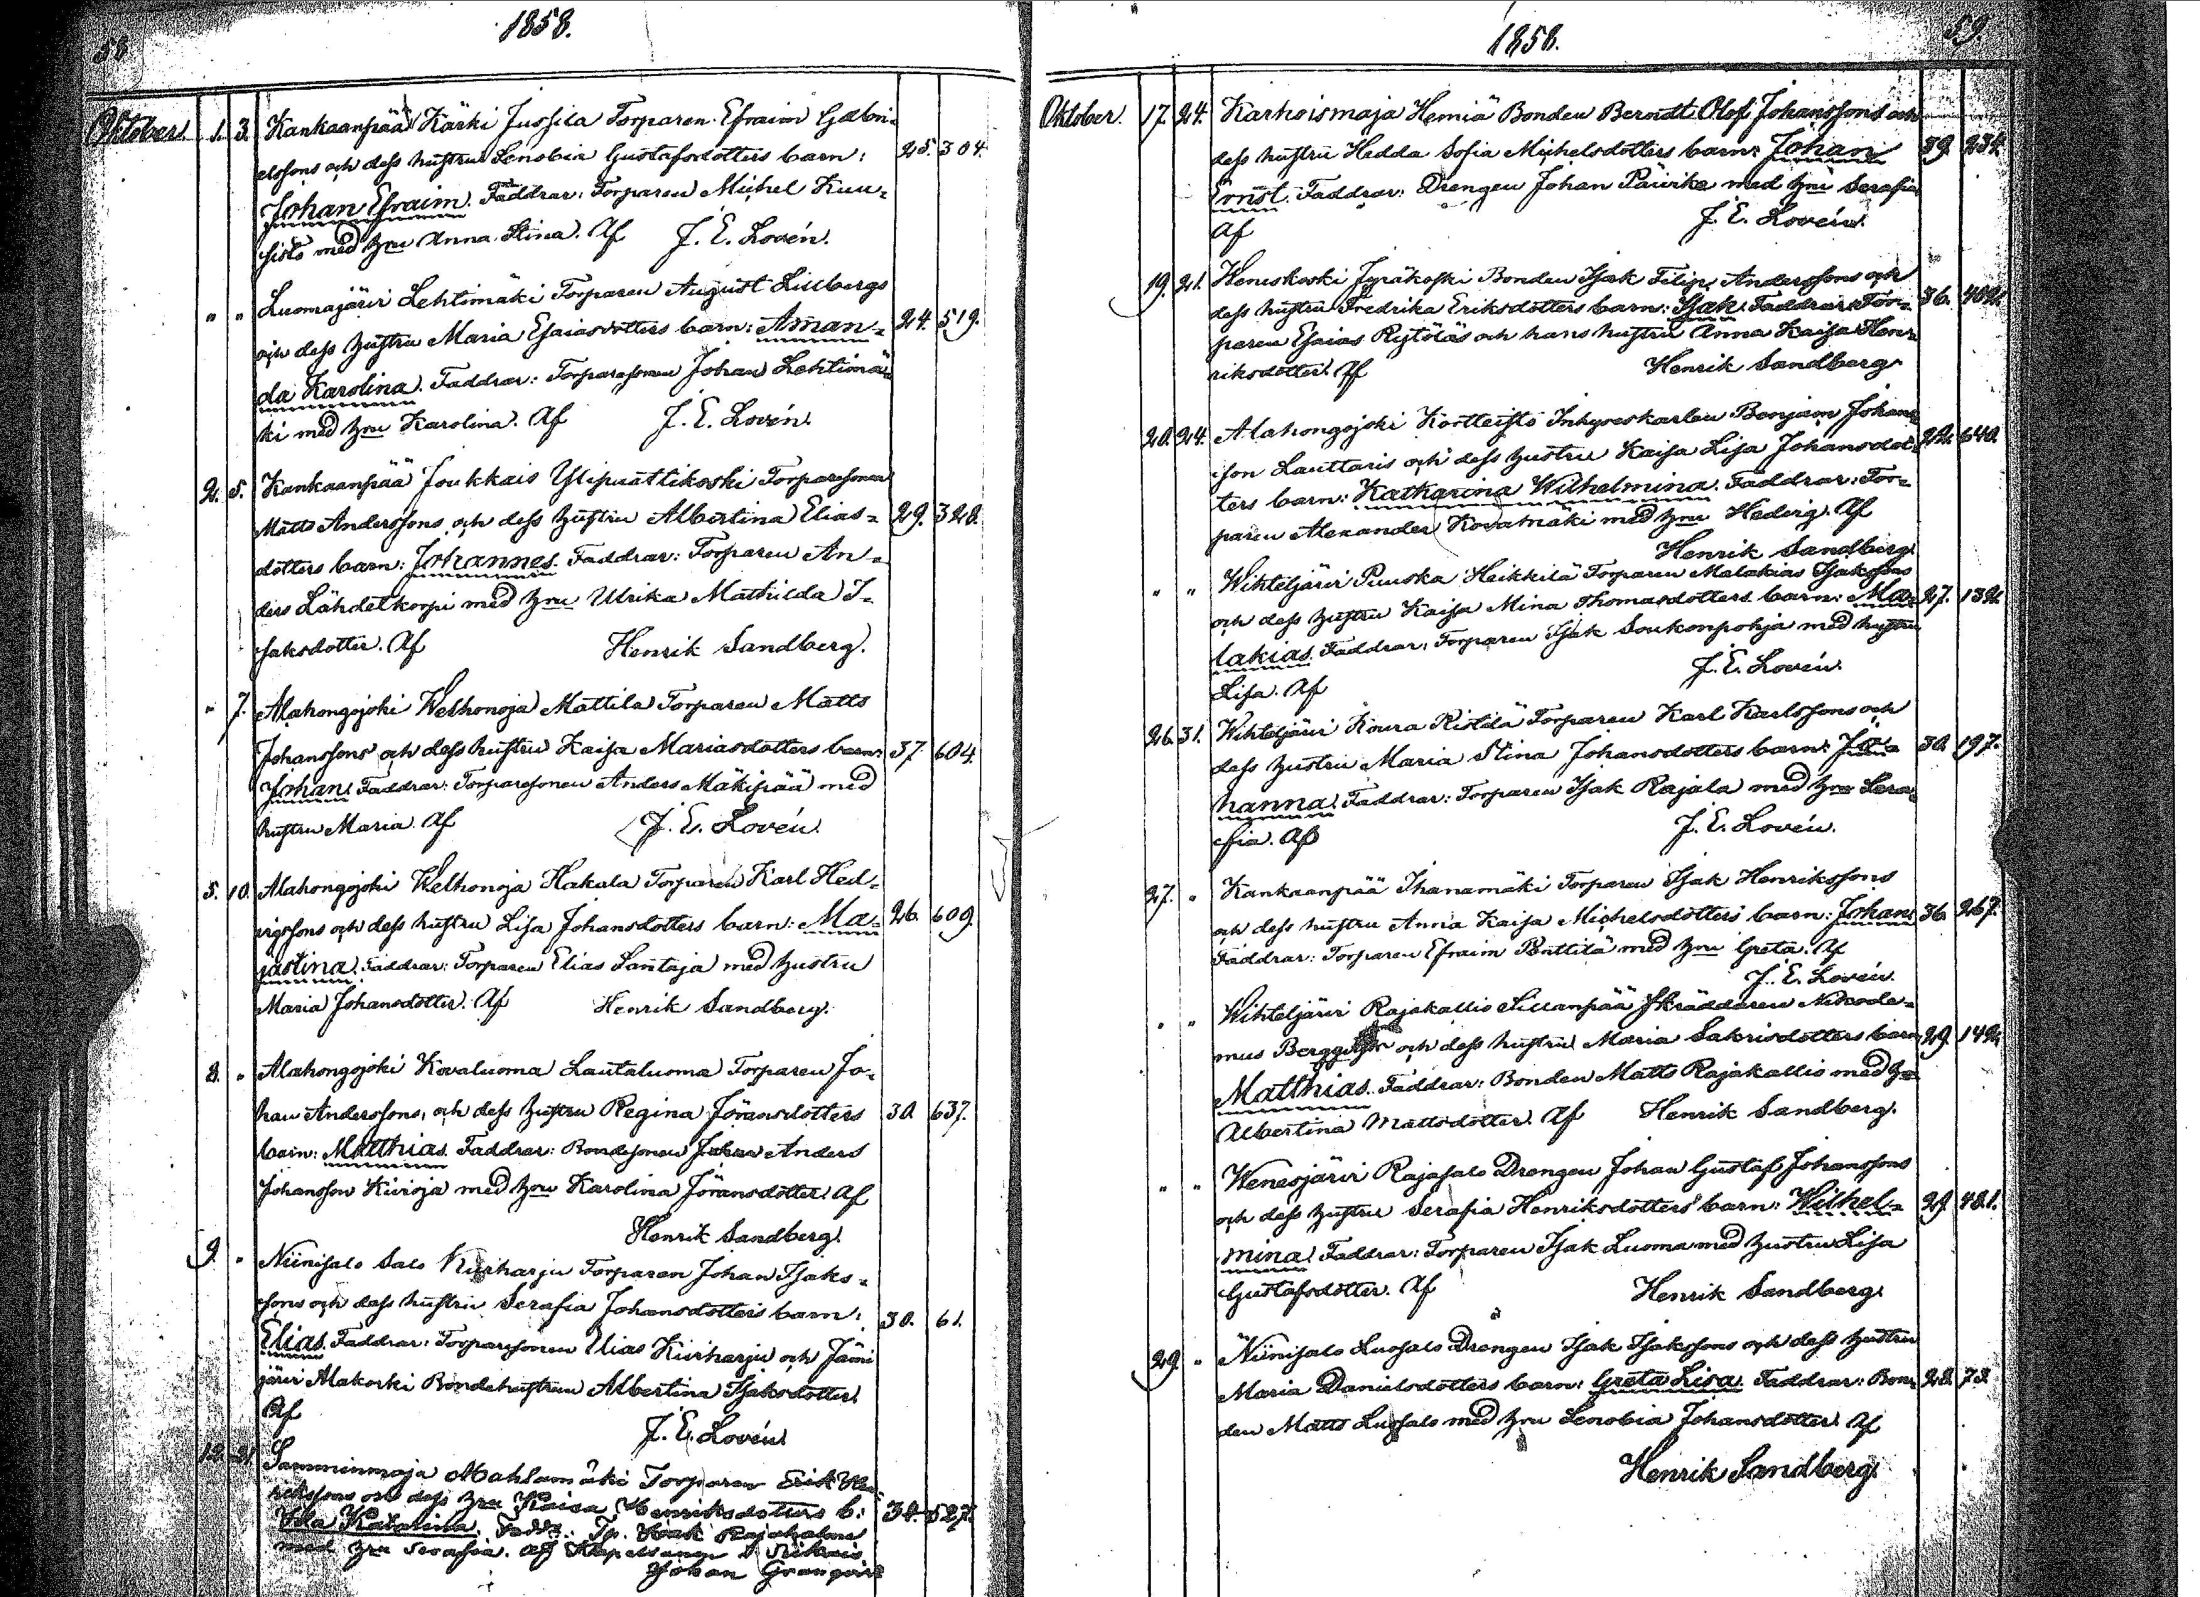 58
1858.
Oktober. 1. 3. Kankaanpää Kärki Jussila Torparen Efraim Gabri-
elssons och dess hustru Senobia Gustafsdotters barn: 25. 304.
Johan Efraim. Faddrar: Torparen Michel Kuu-
sisto med hru Anna Stina. Af J. E. Lovén.
" " Luomajärvi Lehtimäki Torparen August Lillbergs
och dess hustru Maria Esaiasdotters barn: Aman- 24. 519.
da Karolina. Faddrar: Torparesonen Johan Lehtimä-
ki med hru Karolina. Af J. E. Lovén.
2. 5. Kankaanpää Joukkais Ylipuättikoski Torparesonen
Matts Anderssons och dess hustru Albertina Elias- 29. 328.
dotters barn: Johannes. Faddrar: Torparen An-
ders Lähdetkorpi med hru Ulrika Mathilda I-
saksdotter. Af Henrik Sandberg.
" 7. Alahongojoki Welhonoja Mattila Torparen Matts
Johanssons och dess hustru Kaisa Mariasdotters barn: 37. 604.
Johan. Faddrar: Torparesonen Anders Mäkipää med
hustru Maria. Af J. E. Lovén.
5. 10. Alahongojoki Welhonoja Hakala Torparen Karl Hed-
vigssons och dess hustru Lisa Johansdotters barn: Ma- 26. 609.
jastina. Faddrar: Torparen Elias Santaja med hustru
Maria Johansdotter. Af Henrik Sandberg.
8. " Alahongojoki Kovaluoma Lautaluoma Torparen Jo-
han Anderssons och dess hustru Regina Göransdotters 30. 637.
barn: Matthias. Faddrar: Bondesonen Johan Anders
Johansson Kivioja med hru Karolina Göransdotter. Af
Henrik Sandberg.
9. " Niinisalo Salo Kuirharju Torparen Johan Isaks-
sons och dess hustru Serafia Johansdotters barn: 30. 61.
Elias. Faddrar: Torparesonen Elias Kuirharju och Jämi
järvi Alakoski Bondehustrun Albertina Isaksdotter.
Af J. E. Lovén.
12. 21. Samminmaja Mahlamäki Torparen Erik Hen-
rikssons och dess hru Kaisa Henriksdotters b: 34. 527.
Ida Katarina. Faddr.: Tp. Isak
med hru Serafia. Af Kapelanen i
Johan Granqvist
59.
1858.
Oktober. 17. 24. Karhoismaja Hemiä Bonden Berndt Olof Johanssons och
dess hustru Hedda Sofia Michelsdotters barn: Johan 39. 234.
Ernst. Faddrar: Drengen Johan Päivike med hru Serafia
Af J. E. Lovén.
19. 21. Wenesskoski Jyräkoski Bonden Isak Filip Anderssons och
dess hustru Fredrika Eriksdotters barn: Isak. Faddrar: Tor- 36. 402.
paren Esaias Rytölä och hans hustru Anna Kaisa Hen-
riksdotter. Af Henrik Sandberg
20. 24. Alahongojoki Kortteisto Inhyseskarlen Benjam Johans-
son Lauttaris och dess hustru Kaisa Lisa Johansdot- 22. 640.
ters barn: Katharina Wilhelmina. Faddrar: Tor-
paren Alexander Kovamäki med hru Hedvig. Af
Henrik Sandberg
" " Wihteljärvi Puuska Heikkilä Torparen Malakias Isakssons
och dess hustru Kaisa Mina Thomasdotters barn: Ma- 27. 132.
lakias. Faddrar: Torparen Isak Soukonpohja med hustru
Lisa. Af J. E. Lovén.
26. 31. Wihteljärvi Koura Ristilä Torparen Karl Karlssons och
dess hustru Maria Stina Johansdotters barn: Jo- 30. 197.
hanna. Faddrar: Torparen Isak Rajala med hru Sera-
fia. Af J. E. Lovén.
27. " Kankaanpää Ihanamäki Torparen Isak Henrikssons
och dess hustru Anna Kaisa Michelsdotters barn: Johan. 36. 267.
Faddrar: Torparen Efraim Penttilä med hru Greta. Af
J. E. Lovén.
" " Wihteljärvi Rajakallio Sillanpää Skräddaren Nikode-
mus Berggren och dess hustru Maria Sakrisdotters barn 29. 142.
Matthias. Faddrar: Bonden Matts Rajakallio med hru
Albertina Mattsdotter. Af Henrik Sandberg.
" " Wenesjärvi Rajasalo Drengen Johan Gustaf Johanssons
och dess hustru Serafia Henriksdotters barn: Wilhel- 29. 421.
mina. Faddrar: Torparen Isak Luoma med hustru Lisa
Gustafsdotter. Af Henrik Sandberg.
29. " Niinisalo Luosalo Drengen Isak Isakssons och dess hustru
Maria Danielsdotters barn: Greta Lisa. Faddrar: Bon- 28. 73.
den Matts Luosalo med hru Senobia Johansdotter. Af
Henrik Sandberg.